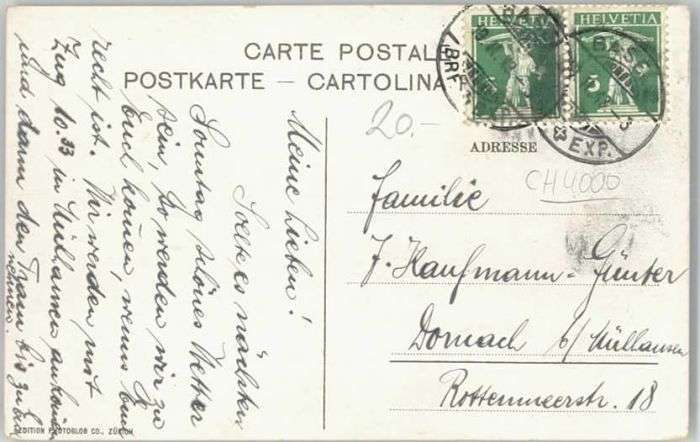 CARTE POSTALE
POSTKARTE — CARTOLINA
HELVETIA
HELVETIA
5
BASEL
BRF. EXP.
20.-
ADRESSE
CH4.000
Familie
J. Kaufmann-Günter
Dornach b/Mülhausen
Rottenmeerstr. 18
Meine Lieben!
Sollte es nächsten
Sonntag schönes Wetter
sein, so werden wir zu
Euch kommen, wenns Euch
recht ist. Wir werden mit
Zug 10.33 in Mülhausen
und dann den Tram bis zu
nehmen.
EDITION PHOTOGLOB CO., ZÜRICH